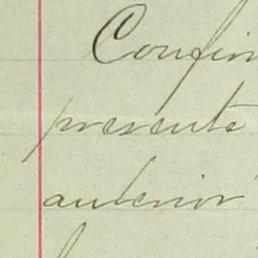 Confin
presente
anterior